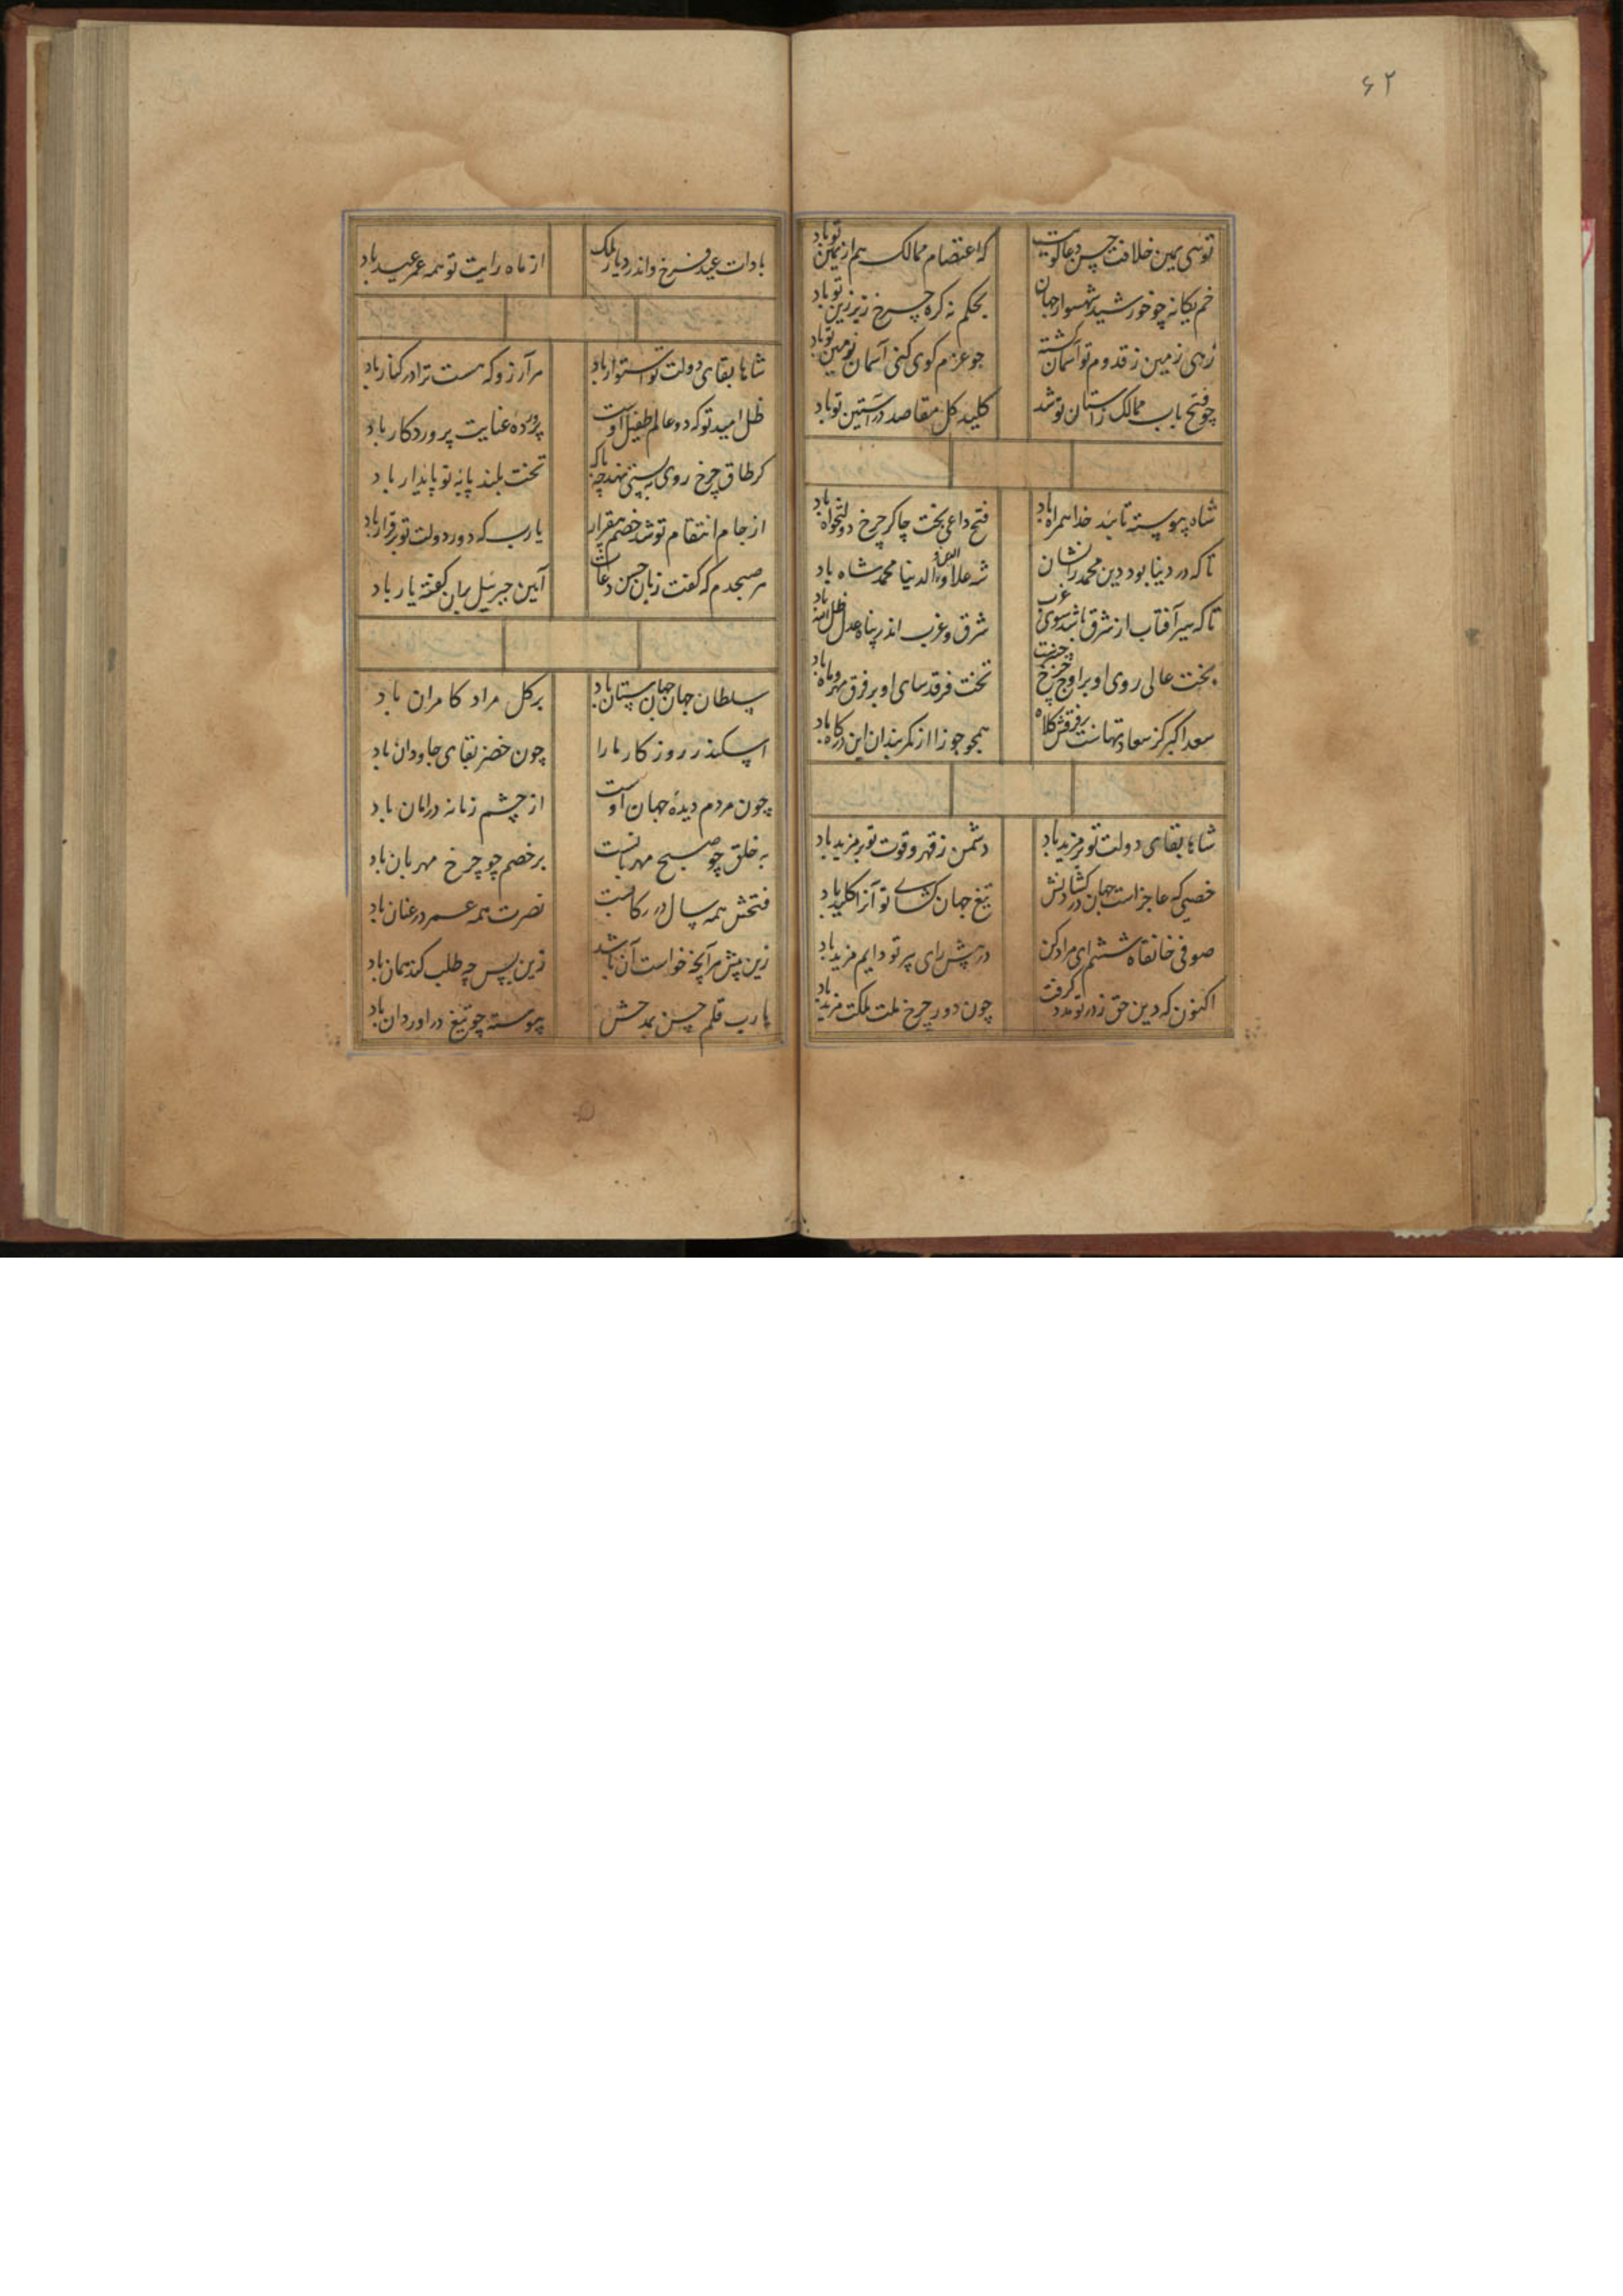 ۶۲
توئی یمین خلافت حسن دعاگویت
که اعتصام ممالک هم از یمین تو باد
خم یکانه چو خورشید شهسوار جهان
بحکم نه کره چرخ زیر زین تو باد
زهی زمین ز قدوم تو آسمان کشته
جو عزم کوی کنی آسمان زمین تو باد
چو فتح باب ممالک ز آستان تو شد
کلید کل مقاصد در آستین تو باد
شاه پیوسته تائید خدا همراه باد
فتح داعی بخت چاکر چرخ دولتخواه باد
تا که در دینا بود دین محمد را نشان
شه علاء الدین والدنیا محمد شاه باد
تا که سیر آفتاب از شرق باشد سوی غرب
شرق و غرب اندر پناه عدل ظل الله باد
بخت عالی روی او بر اوج چرخ
تخت فرقدسای او بر فرق مهر و ماه باد
سعد اکبر کز سعادتهاست بر فرقش کلاه
همجو جوزا از کمربندان این درکاه باد
شاها بقای دولت تو بر مزید باد
دشمن ز قهر و قوت تو بر مزید باد
خصمی که عاجز است جهان در کشادنش
تیغ جهان کشای تو آنرا کلید باد
صوفی خانقاه ششم
در پیش رای پیر تو دایم مرید باد
اکنون که دین حق ز در تو مدد کرفت
چون دور چرخ ملت ملکت مزید باد
بادات عید فرخ و اندر دیار ملک
از ماه رایت تو همه عمر عید باد
شاها بقای دولت تو استوار باد
هر آرزو که هست ترا در کنار باد
ظل امید تو که دو عالم طفیل اوست
پرورده عنایت پروردکار باد
کر طاق چرخ روی به پستی نهد چه باک
تخت بلند پایه تو پایدار باد
از جام انتقام تو شد خصم بیقرار
یارب که دور دولت تو برقرار باد
هر صبحدم که کفت زبان حسن دعات
آمین جبرئیل بران کفته یار باد
سلطان جهان جهان ستان باد
بر کل مراد کامران باد
اسکندر روزکار ما را
چون خضر بقای جاودان باد
چون مردم دیدۀ جهان اوست
از چشم زمانه در امان باد
به خلق چو صبح مهربانست
بر خصم چو چرخ مهربان باد
فتحش همه سال در رکابست
نصرت همه عمر در عنان باد
زین پیش هر آنچه خواست آن باشد
زین پس چه طلب کند همان باد
یارب قلم حسن بمدحش
پیوسته چو تیغ در اوردان باد